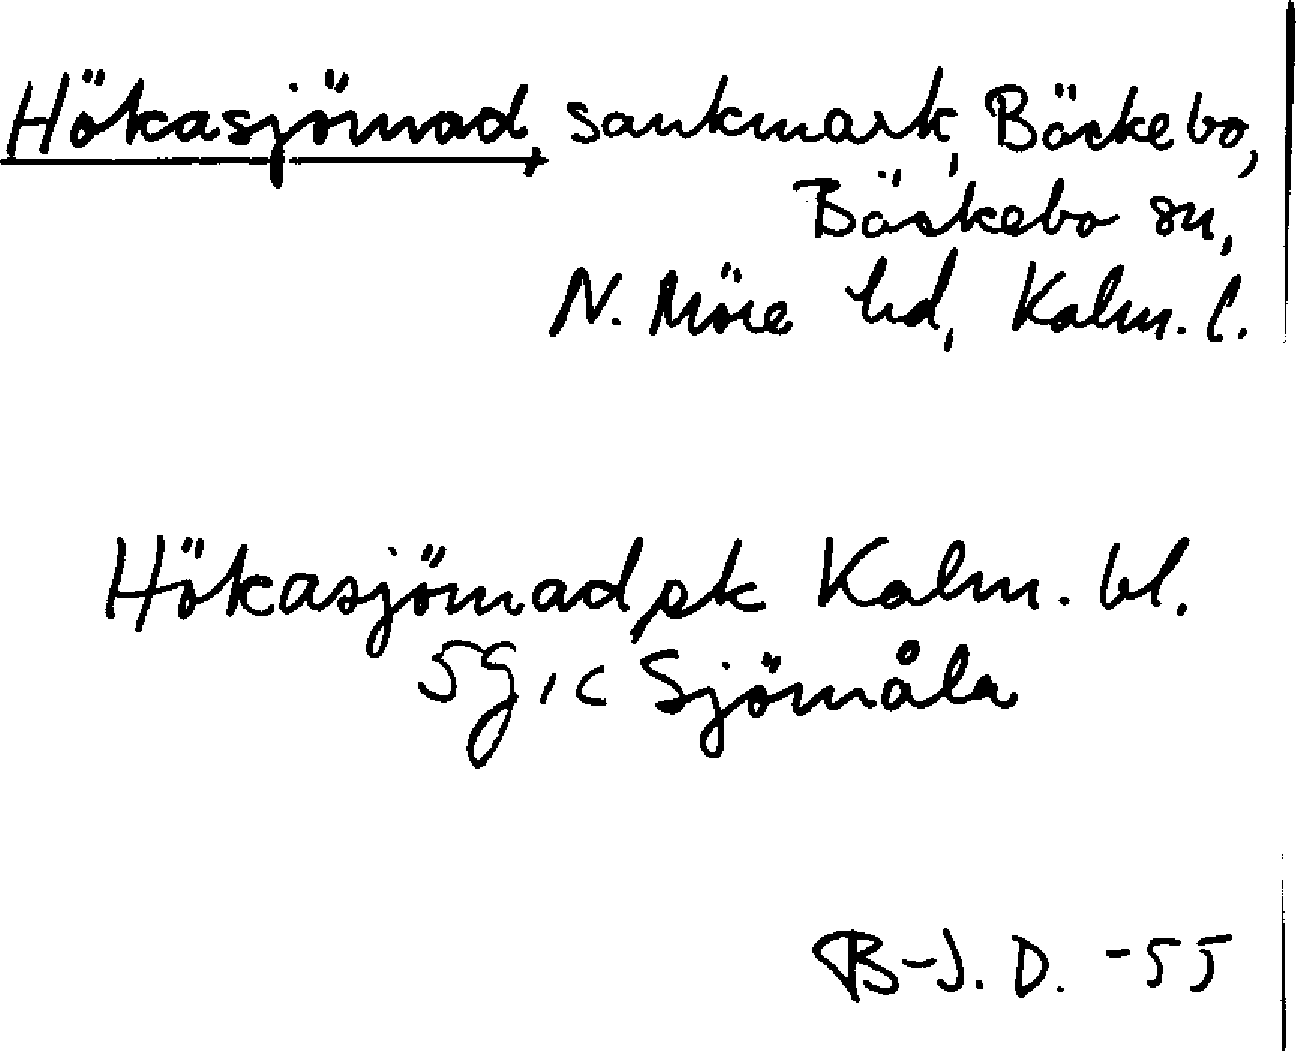 Hökasjömad, sankmark, Bäckebo,
Bäckebo sn,
N. Möre hd, Kalm. l.
Hökasjömad, ek Kalm. bl.
5 g, c Sjömåla
B-J. D. -55